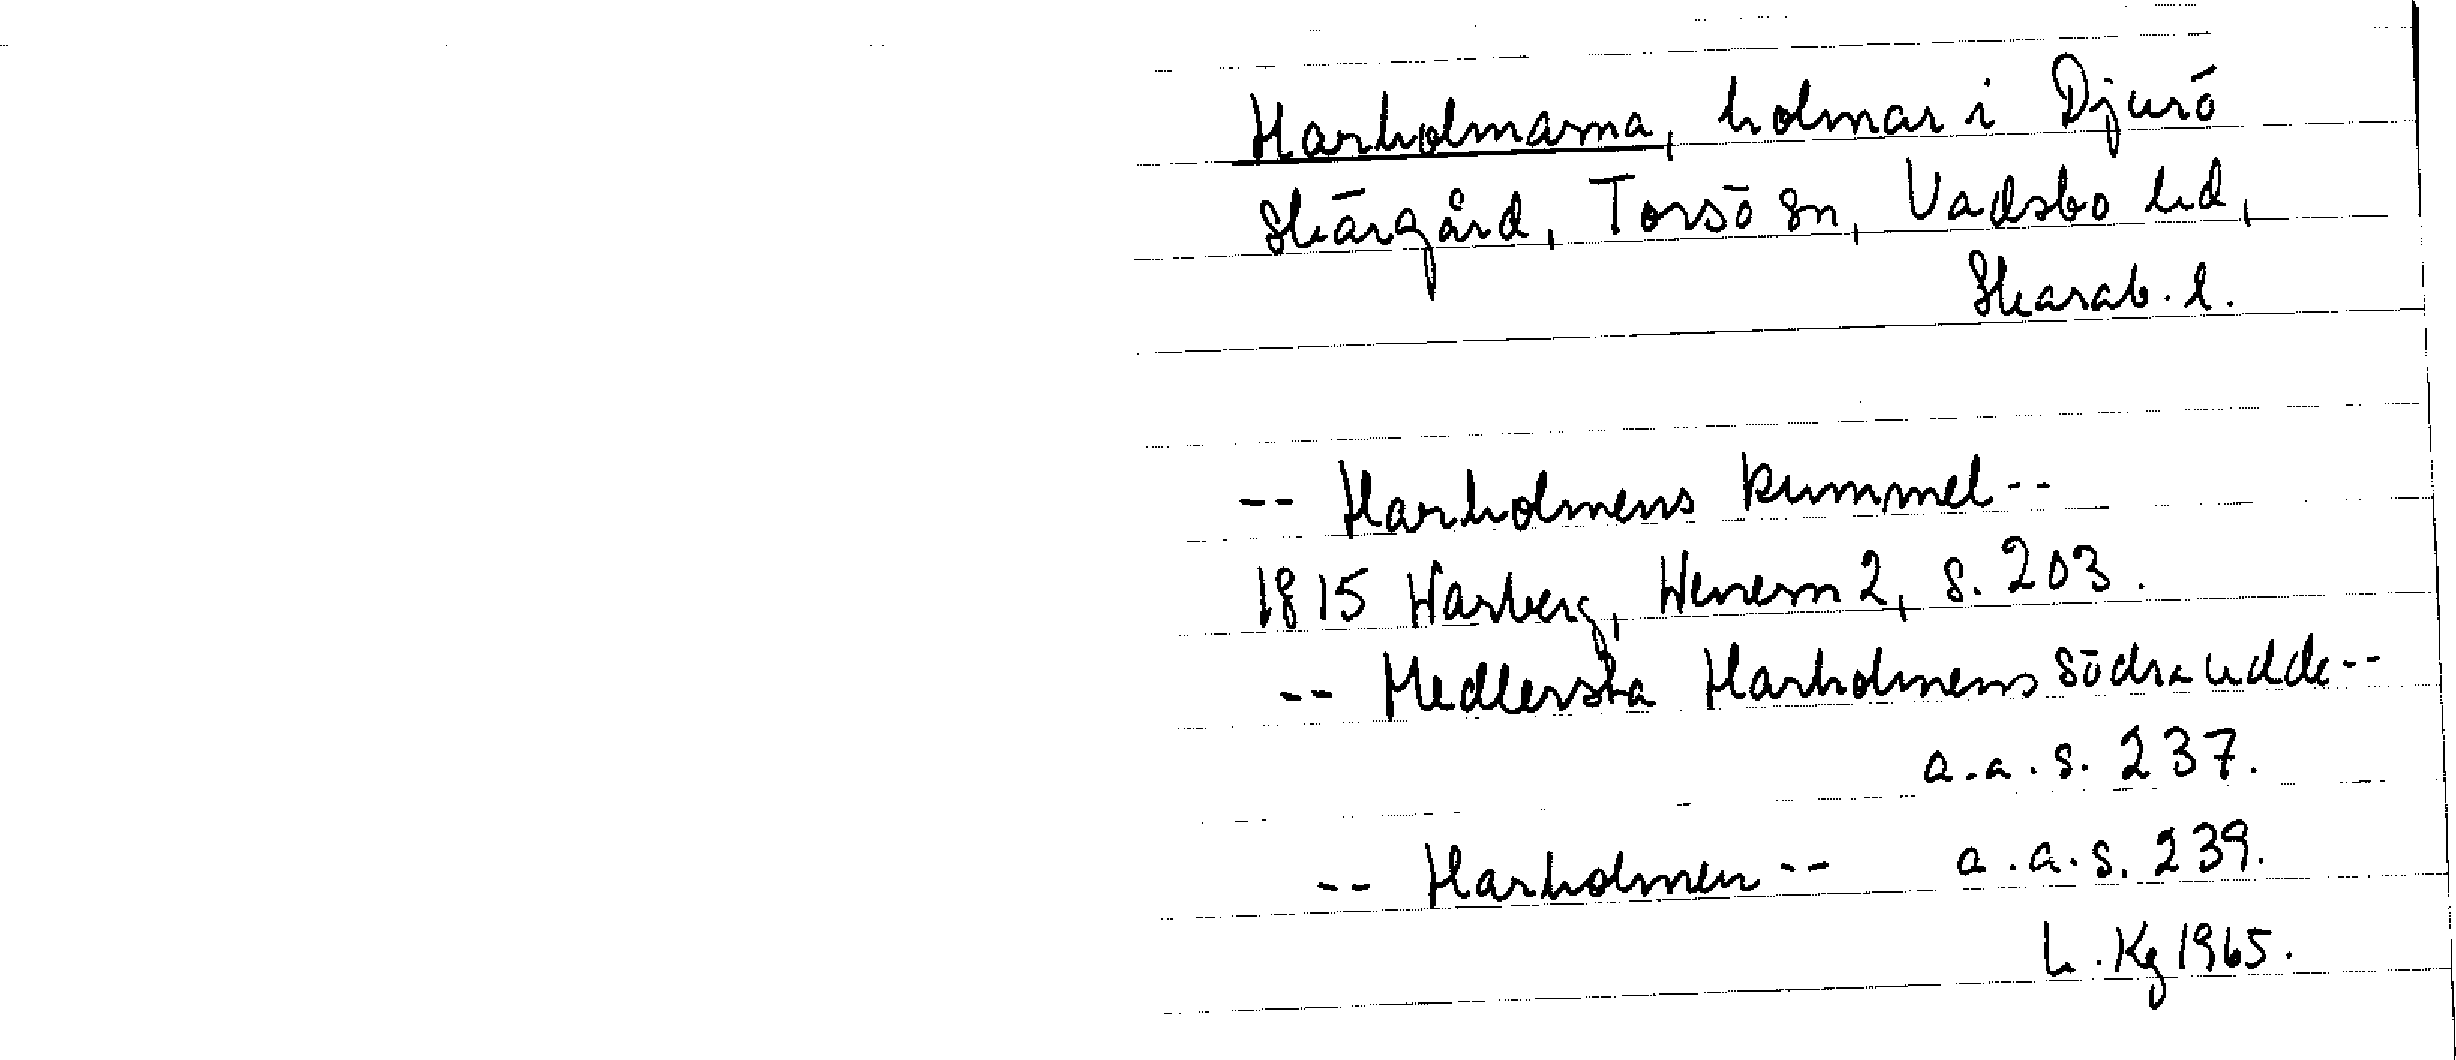 Harholmarna, holmar i Djurö
skärgård, Torsö sn, Vadsbo hd,
Skarab. l.
-- Harholmens kummel --
1815 Warberg, Wenern 2, s. 203.
-- Medlersta Harholmens södra udde --
a.a. s. 237.
-- Harholmen -- a.a. s. 239.
L. Kg 1965.